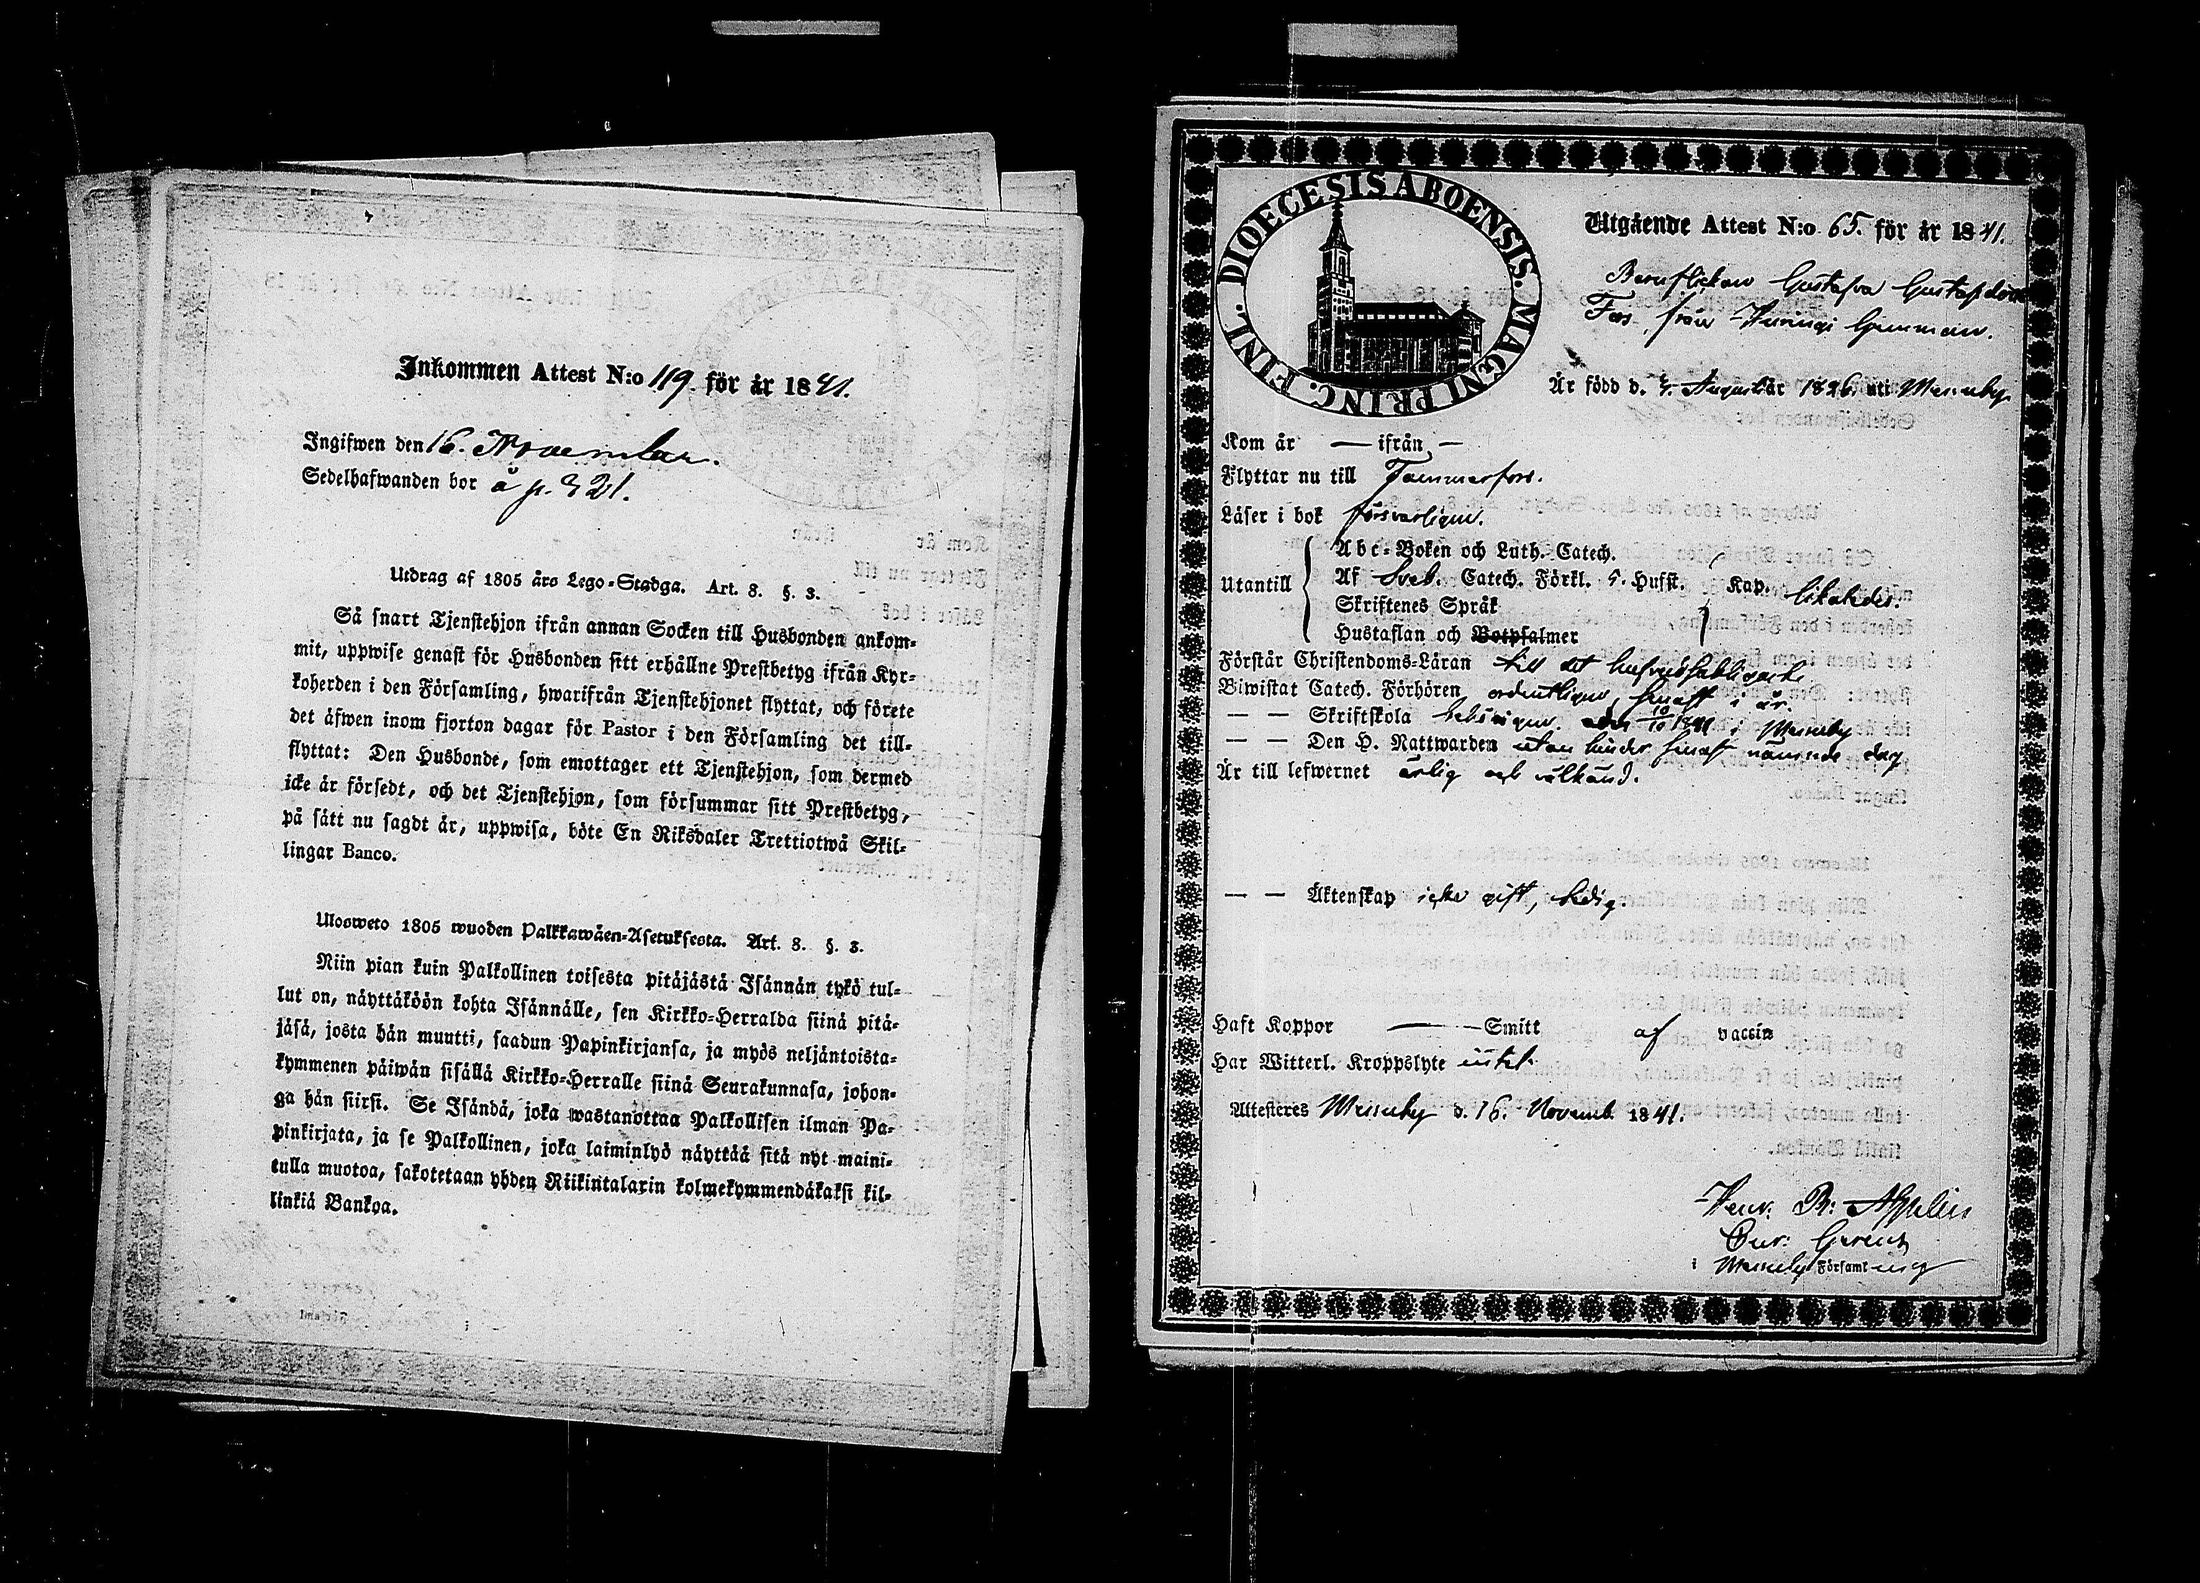 Inkommen Attest N:o 119. för år 1841.
Ingifwen den 16. November.
Sedelhafwanden bor å p. 321.
Utdrag af 1805 års Lego-Stadga. Art. 8. §. 3.
Så snart Tjenstehjon ifrån annan Socken till Husbonden ankom-
mit, uppwise genast för Husbonden sitt erhållne Prestbetyg ifrån Kyr-
koherden i den Församling, hwarifrån Tjenstehjonet flyttat, och förete
det äfwen inom fjorton dagar för Pastor i den Församling det till-
flyttat: Den Husbonde, som emottager ett Tjenstehjon, som dermed
icke är försedt, och det Tjenstehjon, som försummar sitt Prestbetyg,
på sätt nu sagdt är, uppwisa, böte En Riksdaler Trettiotwå Skil-
lingar Banco.
Ulosweto 1805 wuoden Palkkawäen-Asetuksesta. Art. 8. §. 3.
Niin pian kuin Palkollinen toisesta pitäjästä Isännän tykö tul-
lut on, näyttäköön kohta Isännälle, sen Kirkko-Herralda siinä pitä-
jäsä, josta hän muutti, saadun Papinkirjansa, ja myös neljäntoista-
kymmenen päiwän sisällä Kirkko-Herralle siinä Seurakunnasa, johon-
ga hän siirsi. Se Isändä, joka wastanottaa Palkollisen ilman Pa-
pinkirjata, ja se Palkollinen, joka laiminlyö näyttää sitä nyt maini-
tulla muotoa, sakotetaan yhden Riikintalarin kolmekymmendäkaksi kil-
linkiä Bankoa.
DIOECESIS ABOENSIS. MAGNI PRINC. FINL.
Utgående Attest N:o 65. för år 1841.
Gustafva Gustafsdotter
från
Är född d. Augusti år 1826 uti Messuby
Kom år — ifrån —
Flyttar nu till Tammerfors.
Läser i bok försvarligen.
Abc-Boken och Luth. Catech.
Utantill Af Sveb. Catech. Förkl. 5. Hufst. Kap. likaledes.
Skriftenes Språk
Hustaflan och Botpsalmer
Förstår Christendoms-Läran till det hufvudsakligaste
Biwistat Catech. Förhören ordentligen, senast i år.
— — Skriftskola 10/10 1841 i Messuby
— — Den H. Nattwarden utan hinder senast nämnde dag
Är till lefwernet ärlig och välkänd.
— — Äktenskap icke gift, ledig.
Haft Koppor — Smitt af vaccin
Har Witterl. Kroppslyte intet.
Attesteres Messuby d. 16. Novemb. 1841.
i Messuby Församling